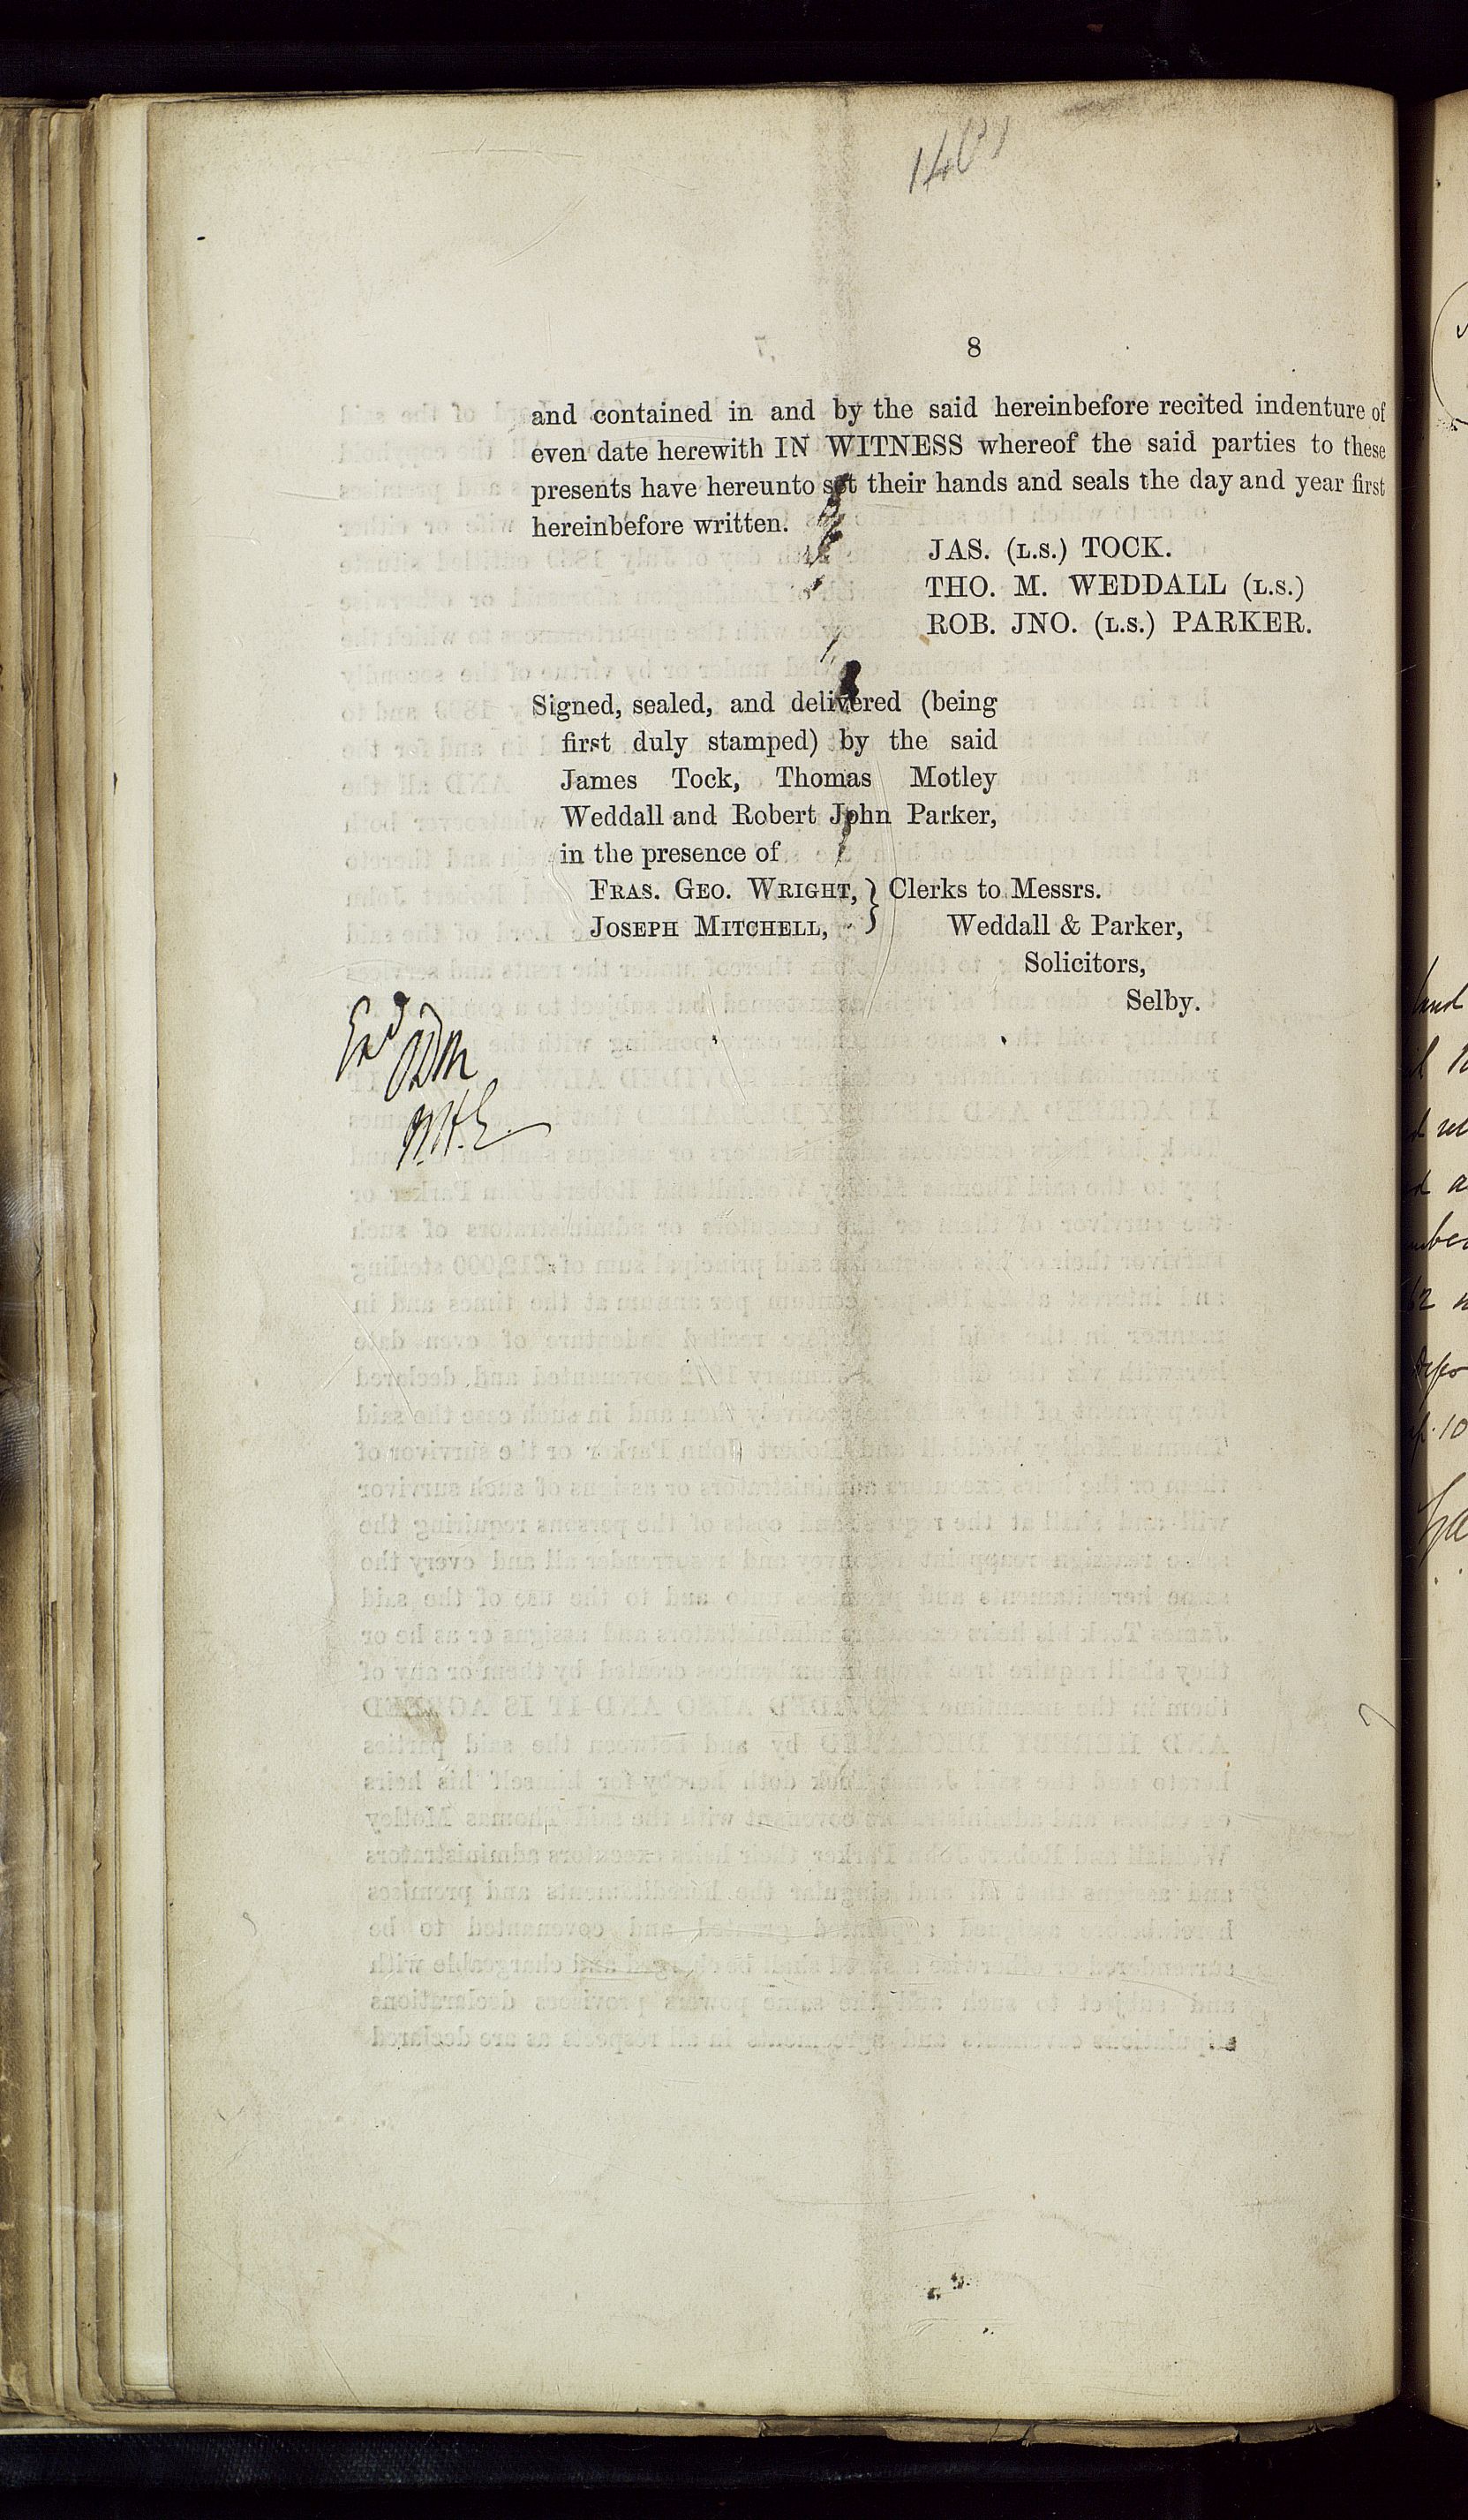 8
and contained in and by the said hereinbefore recited indenture of
even date herewith IN WITNESS whereof the said parties to these
presents have hereunto set their hands and seals the day and year first
hereinbefore written.
JAS. (L.S.) TOCK.
THO. M. WEDDALL (L.S.)
ROB. JNO. (L.S.) PARKER.
Signed, sealed, and delivered (being
first duly stamped) by the said
James Tock, Thomas Motley
Weddall and Robert John Parker,
in the presence of
FRAS. GEO. WRIGHT, } Clerks to Messrs.
JOSEPH MITCHELL, Weddall & Parker,
Solicitors,
Selby.
Exd